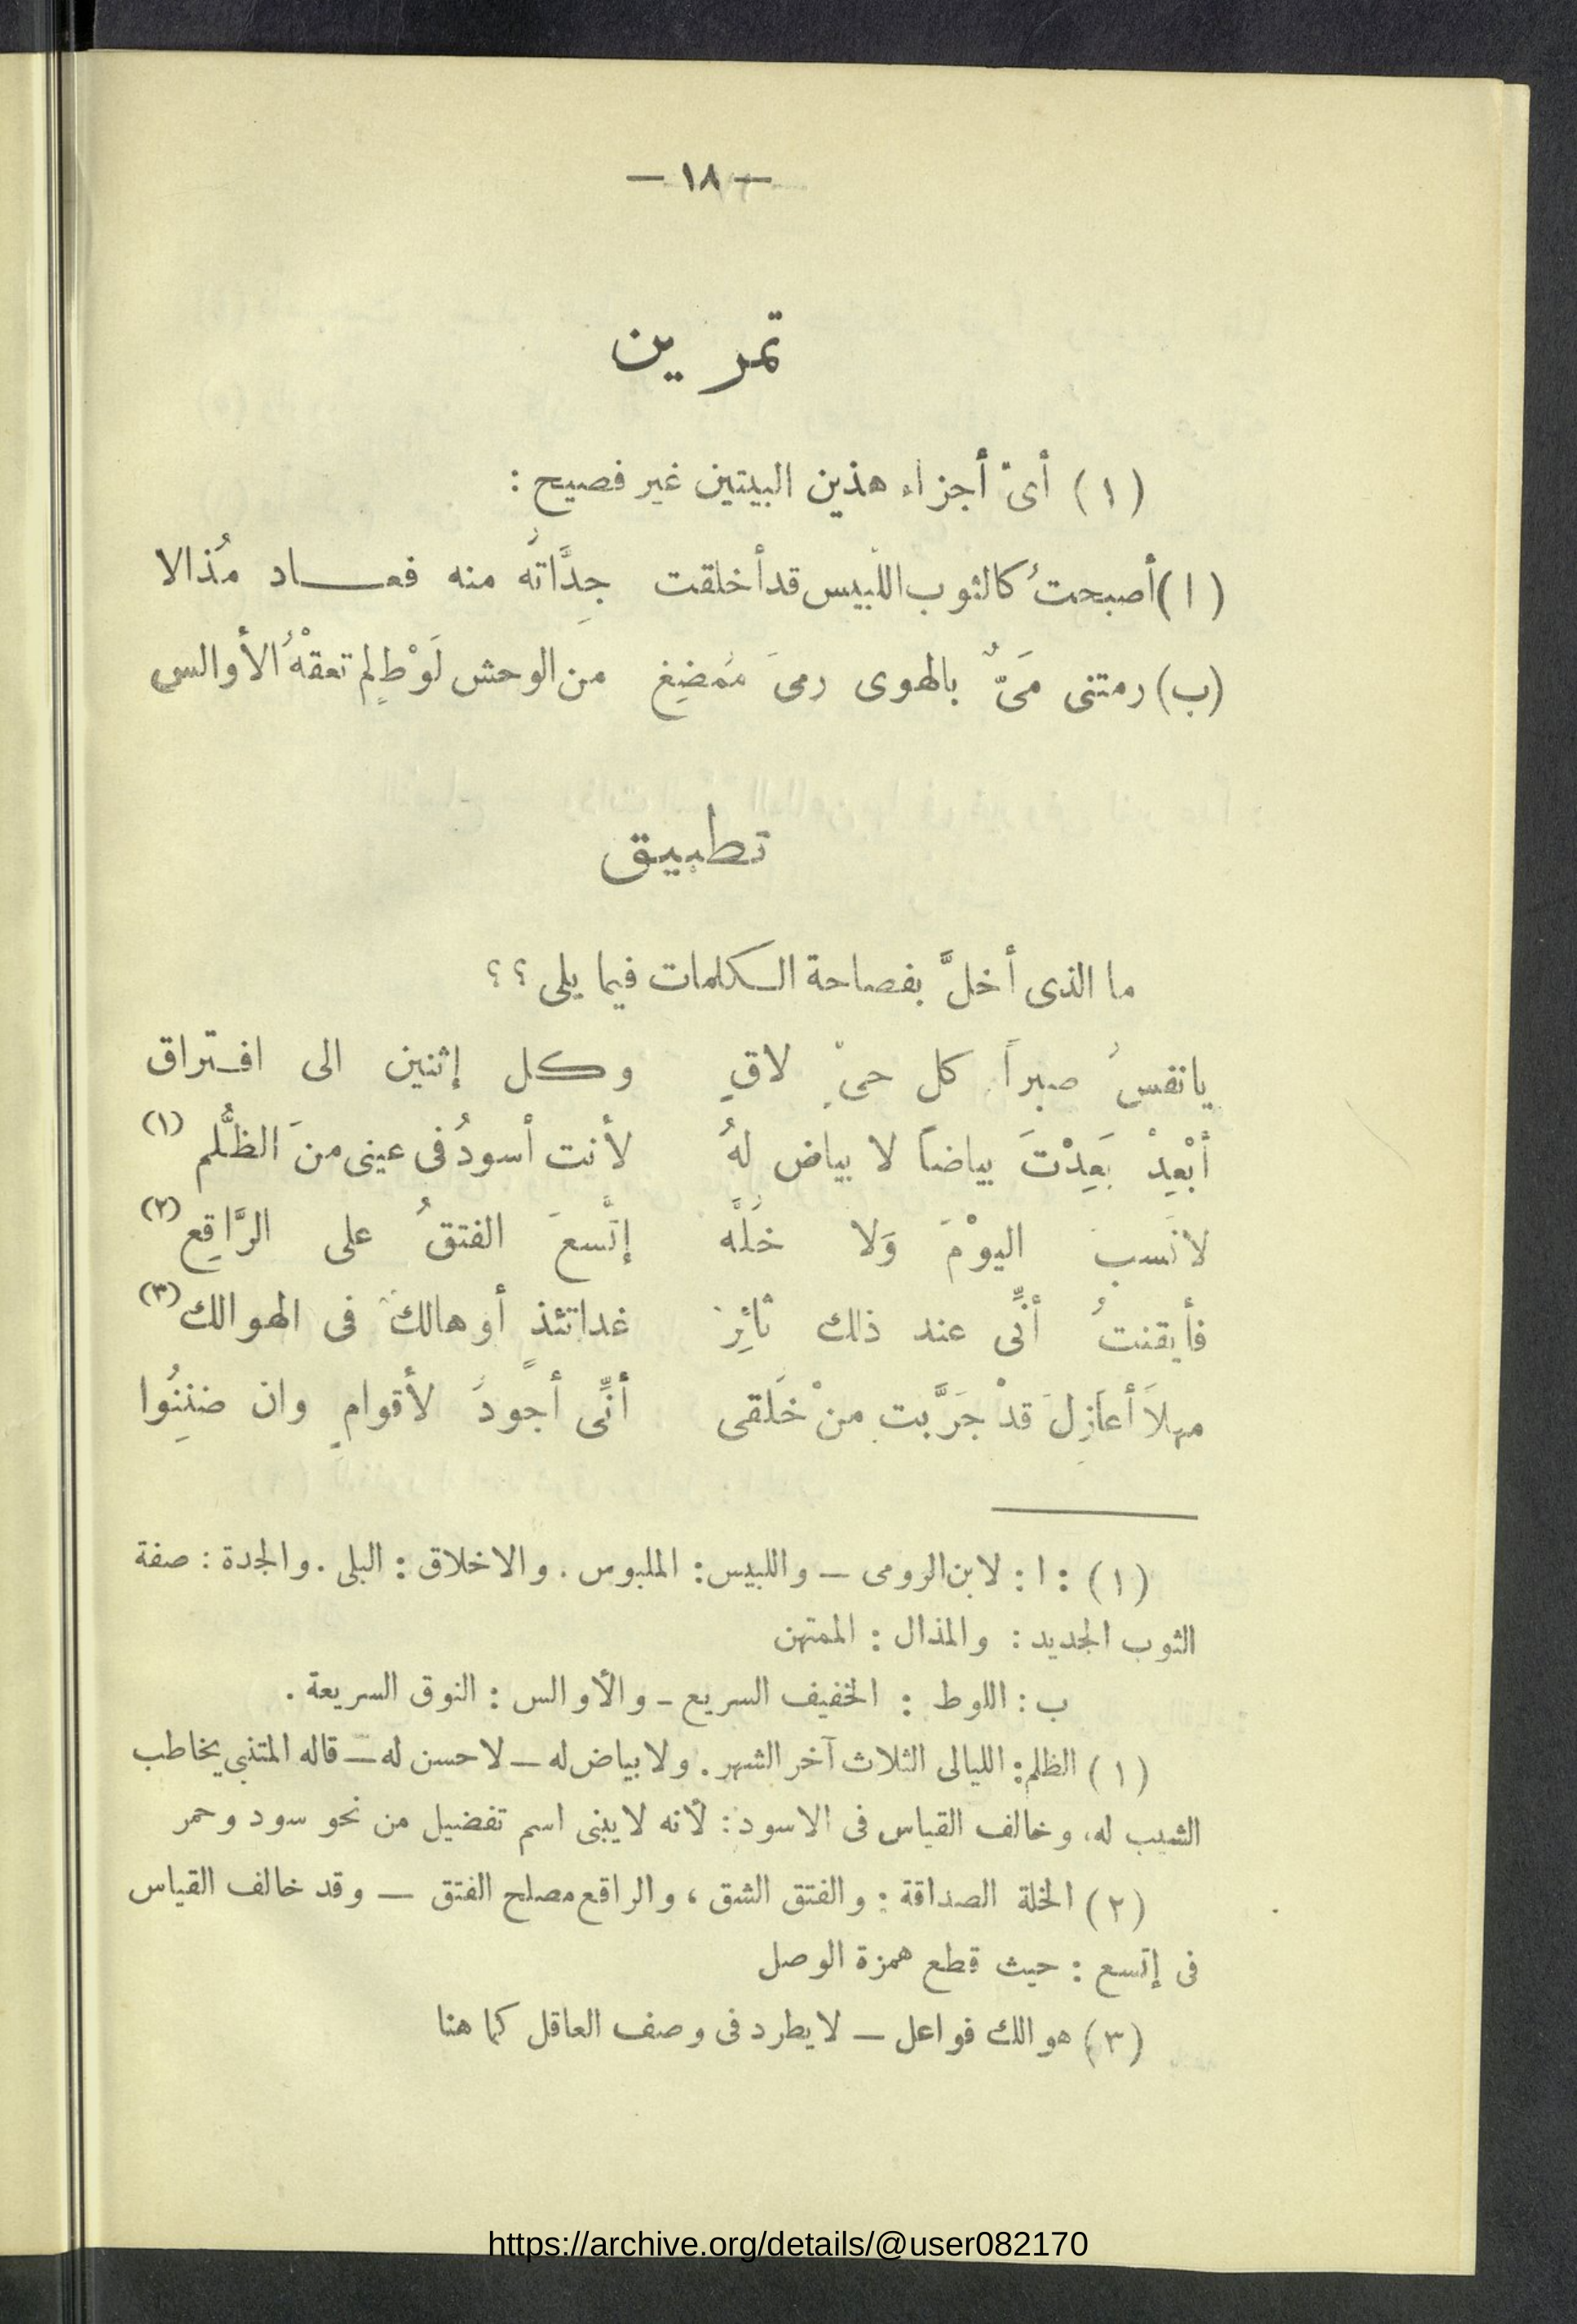 — ١٨ —
تمرين
( ١ ) أىّ أجزاء هذين البيتين غير فصيح :
( ا ) أصبحتُ كالثوب اللّبيس قد أخلقت جِدَّاتُه منه فعـــاد مُذالا
(ب) رمتنى مَىٌّ بالهوى رمىَ مُمضِغ من الوحش لَوْطٍ لم تعقْهُ الأوالس
تطبيق
ما الذى أخلَّ بفصاحة الكلمات فيما يلى ؟ ؟
يانفسُ صبراً كل حىٍّ لاقٍ وكل إثنين الى افتراق
أبْعِدْ بَعِدْتَ بياضاً لا بياض لهُ لأنت أسودُ فى عينى منَ الظُّلم (١)
لا نَسبَ اليوْمَ وَلا خُلَّه إتَّسعَ الفتقُ على الرَّاقِع (٢)
فأيقنتُ أنِّى عند ذلك ثائِر غداتئذ أو هالك فى الهوالك (٣)
مهلاً أعازِلَ قدْ جَرَّبت منْ خَلقى أنِّى أجودُ لأقوامٍ وان ضننُوا
( ١ ) : ا : لابن الرومى — واللبيس : الملبوس . والاخلاق : البلى . والجدة : صفة
الثوب الجديد : والمذال : الممتهن
ب : اللوط : الخفيف السريع - والأوالس : النوق السريعة .
( ١ ) الظلم : الليالى الثلاث آخر الشهر . ولا بياض له — لا حسن له — قاله المتنبي يخاطب
الشيب له، وخالف القياس فى الاسود : لأنه لا يبنى اسم تفضيل من نحو سود وحمر
( ٢ ) الخلة الصداقة : والفتق الشق ، والراقع مصلح الفتق — وقد خالف القياس
فى إتسع : حيث قطع همزة الوصل
( ٣ ) هوالك فواعل — لا يطرد فى وصف العاقل كما هنا
https://archive.org/details/@user082170